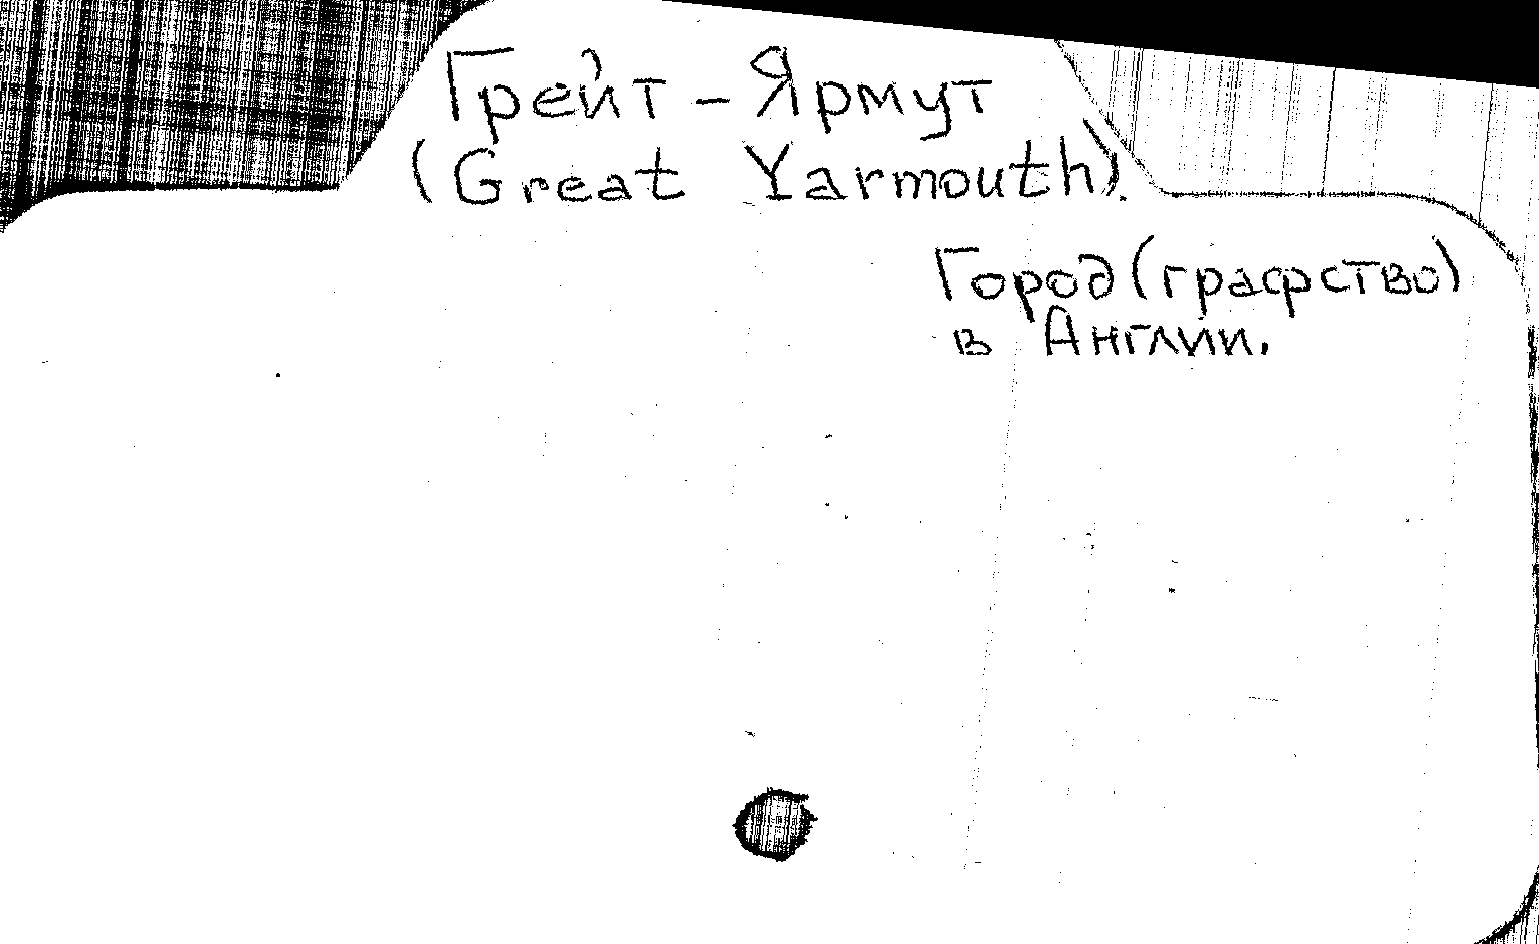 Грейт - Ярмут
(Great Yarmouth).
Город (графство)
в Англии.